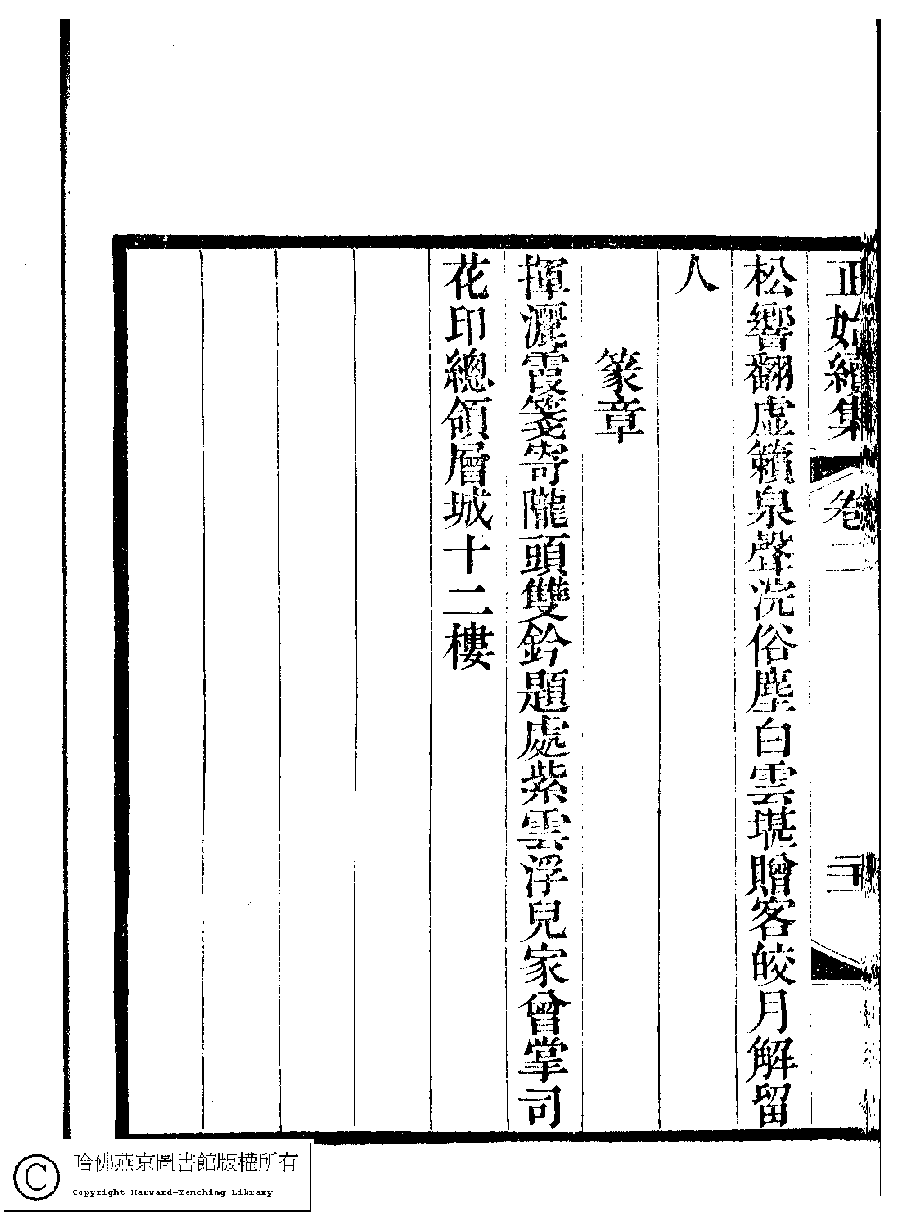 正始續集 卷二
松響翻虛籟泉聲浣俗塵白雲堪贈客皎月解留
人
篆章
揮灑霞箋寄隴頭雙鈐題處紫雲浮兒家曾掌司
花印總領層城十二樓
哈佛燕京圖書館版權所有
Copyright Harvard-Yenching Library